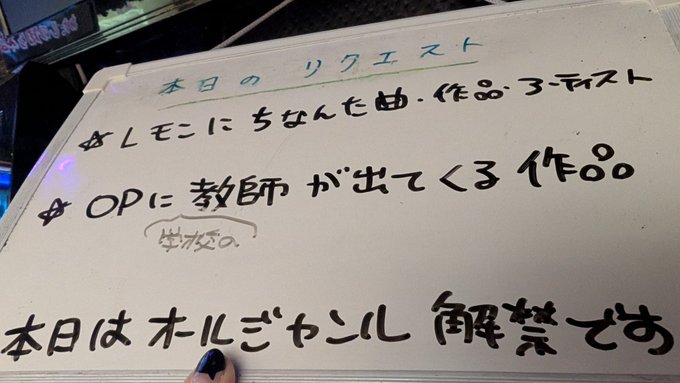 本日の リクエスト
☆ レモンに ちなんだ曲・作品・アーティスト
☆ OPに 教師 が出てくる 作品
学校の
本日は オールジャンル 解禁です